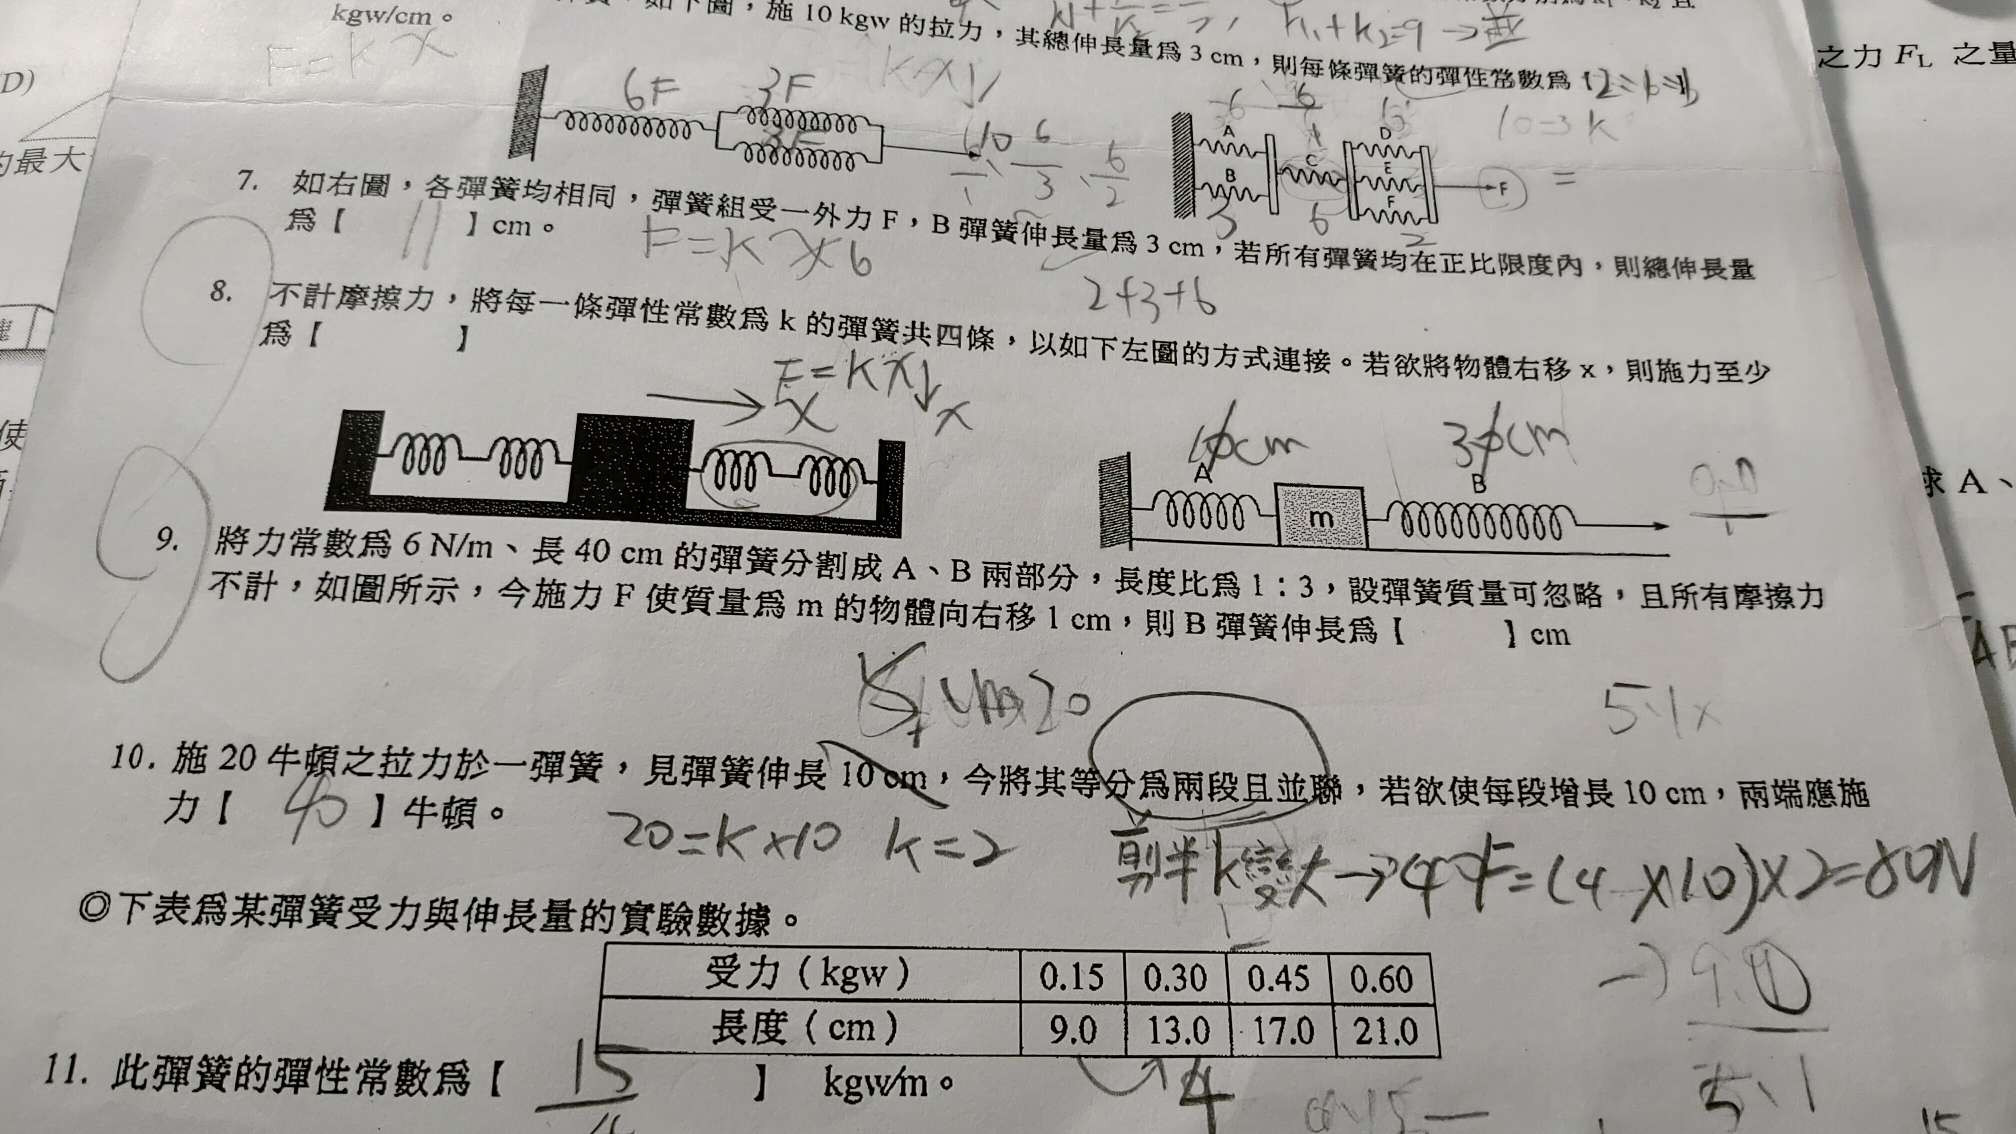 kgw/cm。
F=kx
施 10 kgw 的拉力，其總伸長量為 3 cm，則每條彈簧的彈性常數為【
k₁+k₂=9
之力 FL 之量
D)
6F
3F
3F
10=3k
A
B
C
D
E
F
F
的最大
7. 如右圖，各彈簧均相同，彈簧組受一外力 F，B 彈簧伸長量為 3 cm，若所有彈簧均在正比限度內，則總伸長量
為【 11 】cm。
F=k×6
2+3+6
8. 不計摩擦力，將每一條彈性常數為 k 的彈簧共四條，以如下左圖的方式連接。若欲將物體右移 x，則施力至少
為【 】
F=kx
x
x
A
m
B
求 A、
9. 將力常數為 6 N/m、長 40 cm 的彈簧分割成 A、B 兩部分，長度比為 1：3，設彈簧質量可忽略，且所有摩擦力
不計，如圖所示，今施力 F 使質量為 m 的物體向右移 1 cm，則 B 彈簧伸長為【 】cm
10. 施 20 牛頓之拉力於一彈簧，見彈簧伸長 10 cm，今將其等分為兩段且並聯，若欲使每段增長 10 cm，兩端應施
力【 40 】牛頓。
20=k×10 k=2
剪半k變大→4 F=(4×10)×2=80N
◎下表為某彈簧受力與伸長量的實驗數據。
受力（kgw） 0.15 0.30 0.45 0.60
長度（cm） 9.0 13.0 17.0 21.0
4
11. 此彈簧的彈性常數為【 15/4 】 kgw/m。